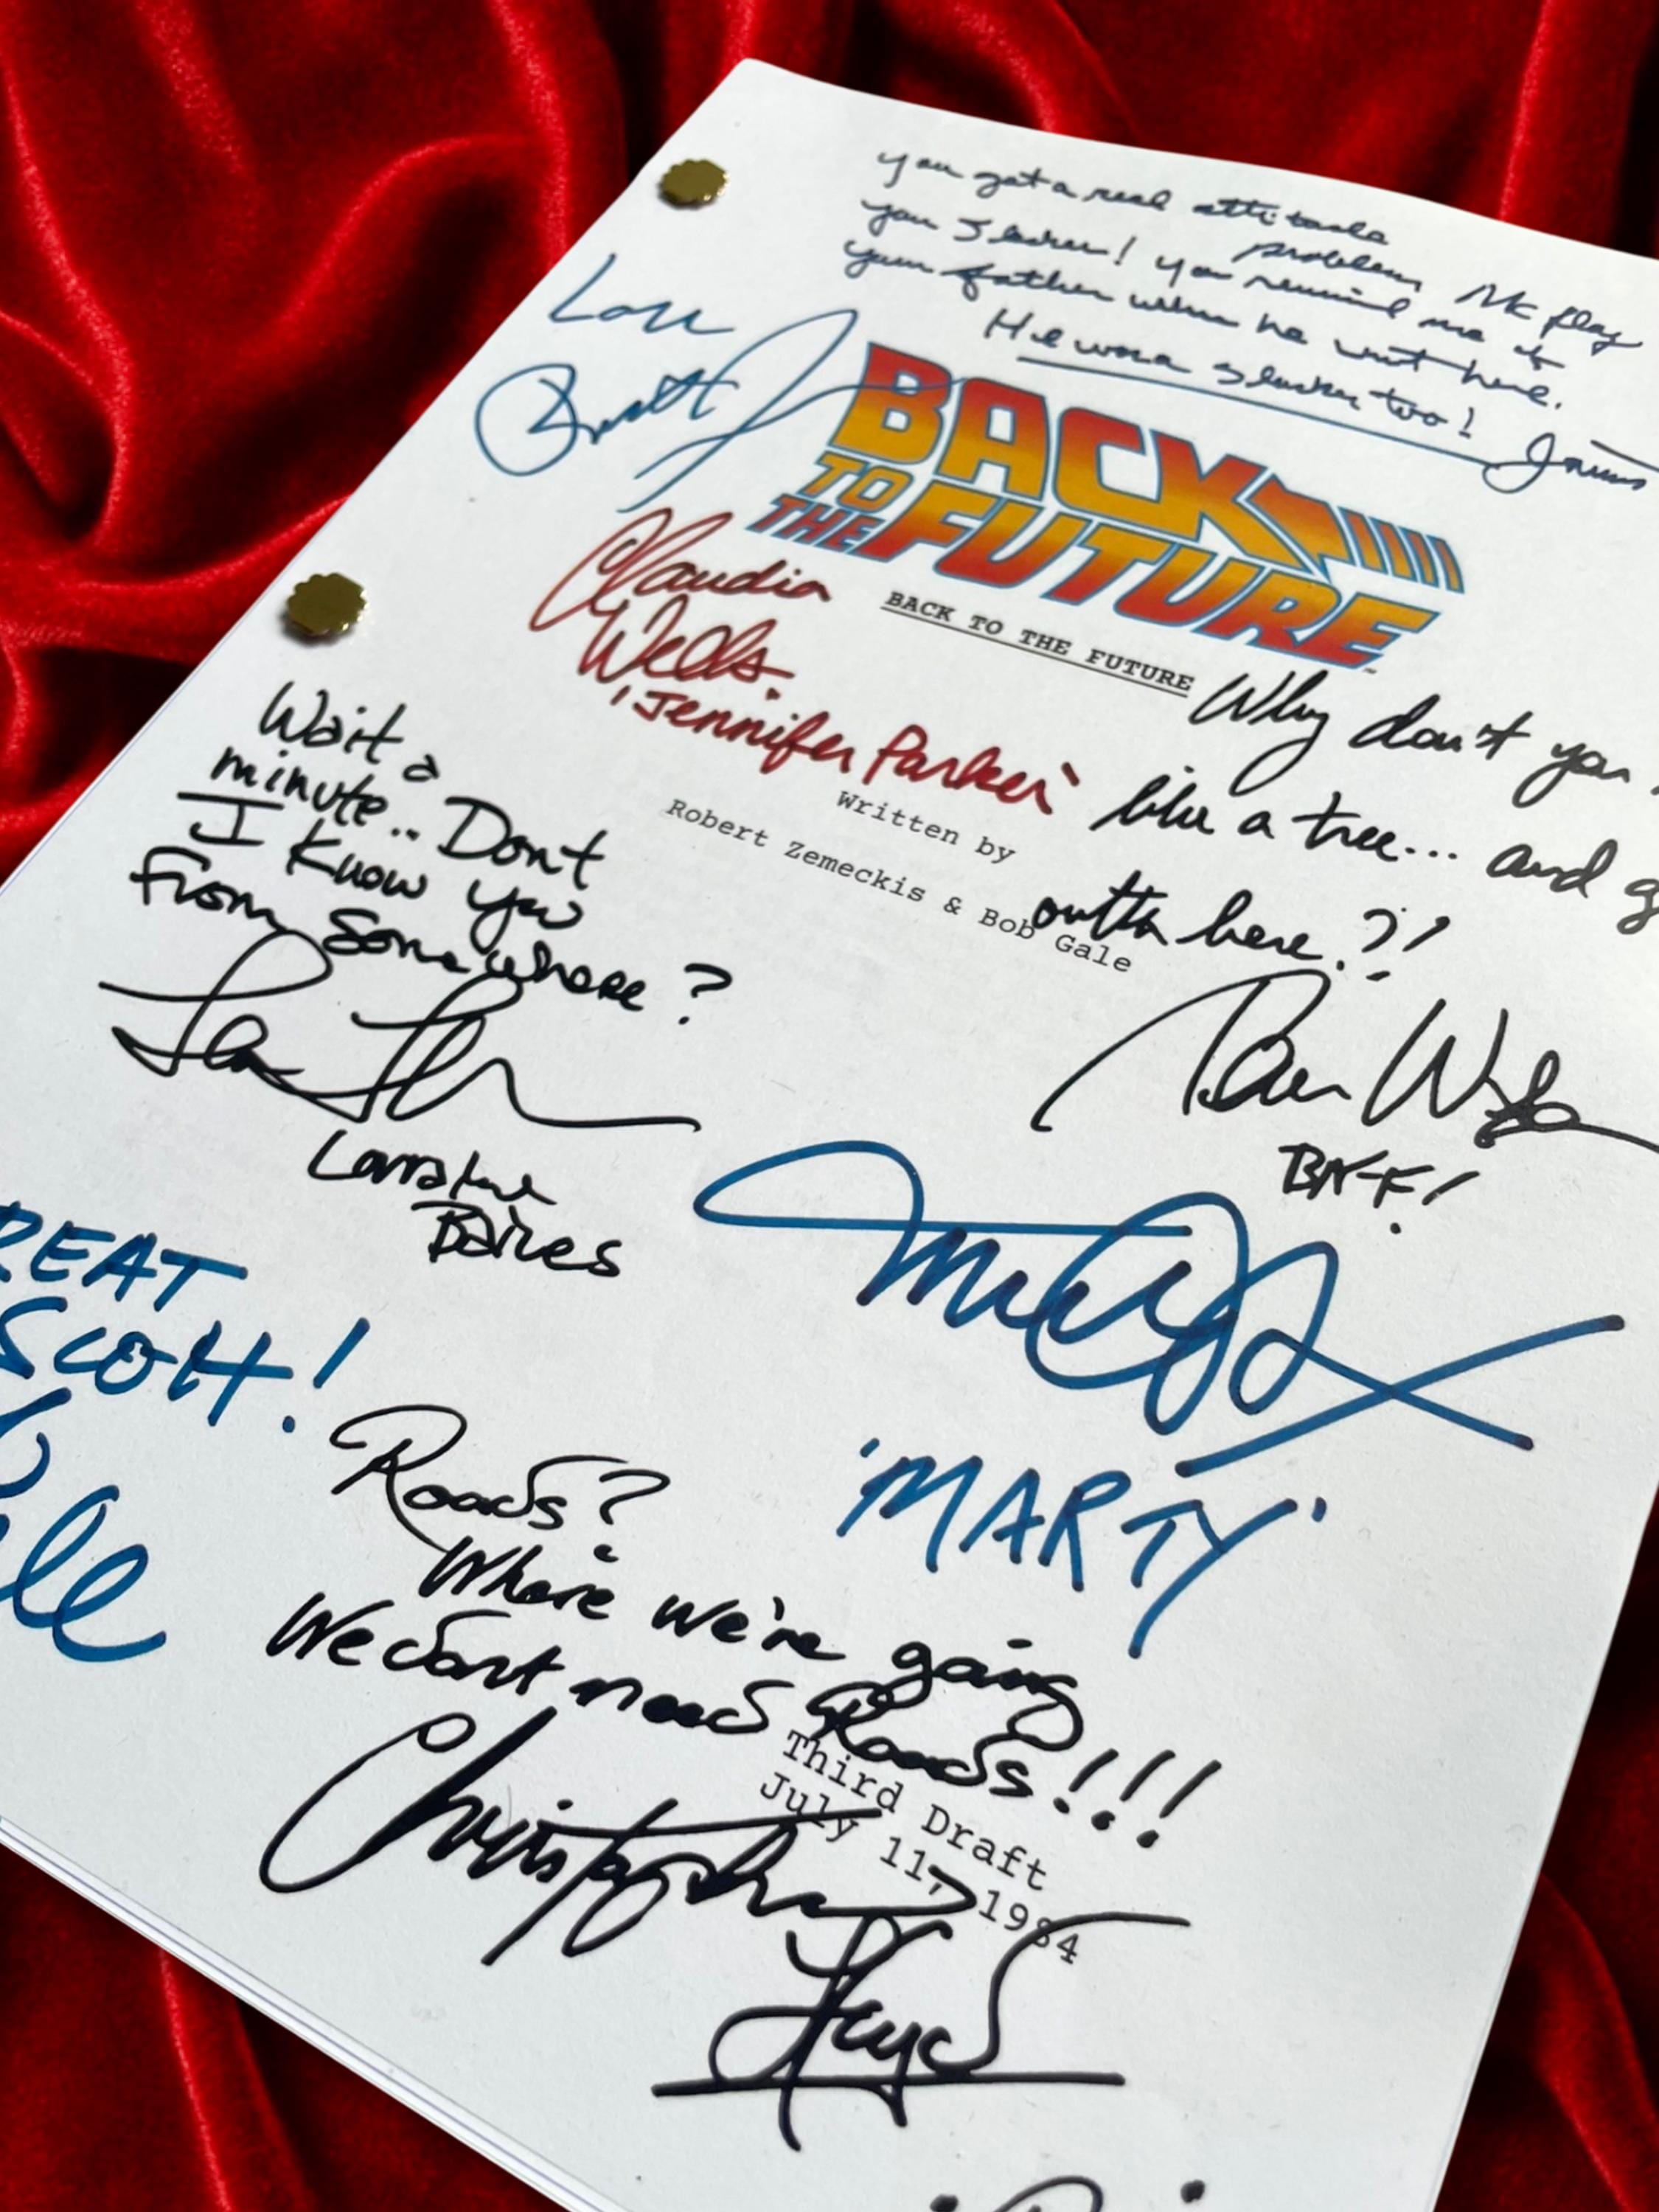 you got a real attitude
problem, McFly
you slacker! you remind me of
your father when he went here.
He was a slacker too!
Love
BACK
TO
THE FUTURE
BACK TO THE FUTURE
Claudia
Wells.
'Jennifer Parker'
Why don't you
like a tree... and
outta here?!
Written by
Robert Zemeckis & Bob Gale
Wait a
minute.. Dont
I Know you
From Somewhere?
Lorraine
Baines
BIFF!
REAT
SCOTT!
'MARTY'
Roads?
Where we're going
We dont need Roads!!!
Third Draft
July 11, 1984
Christopher
Lloyd